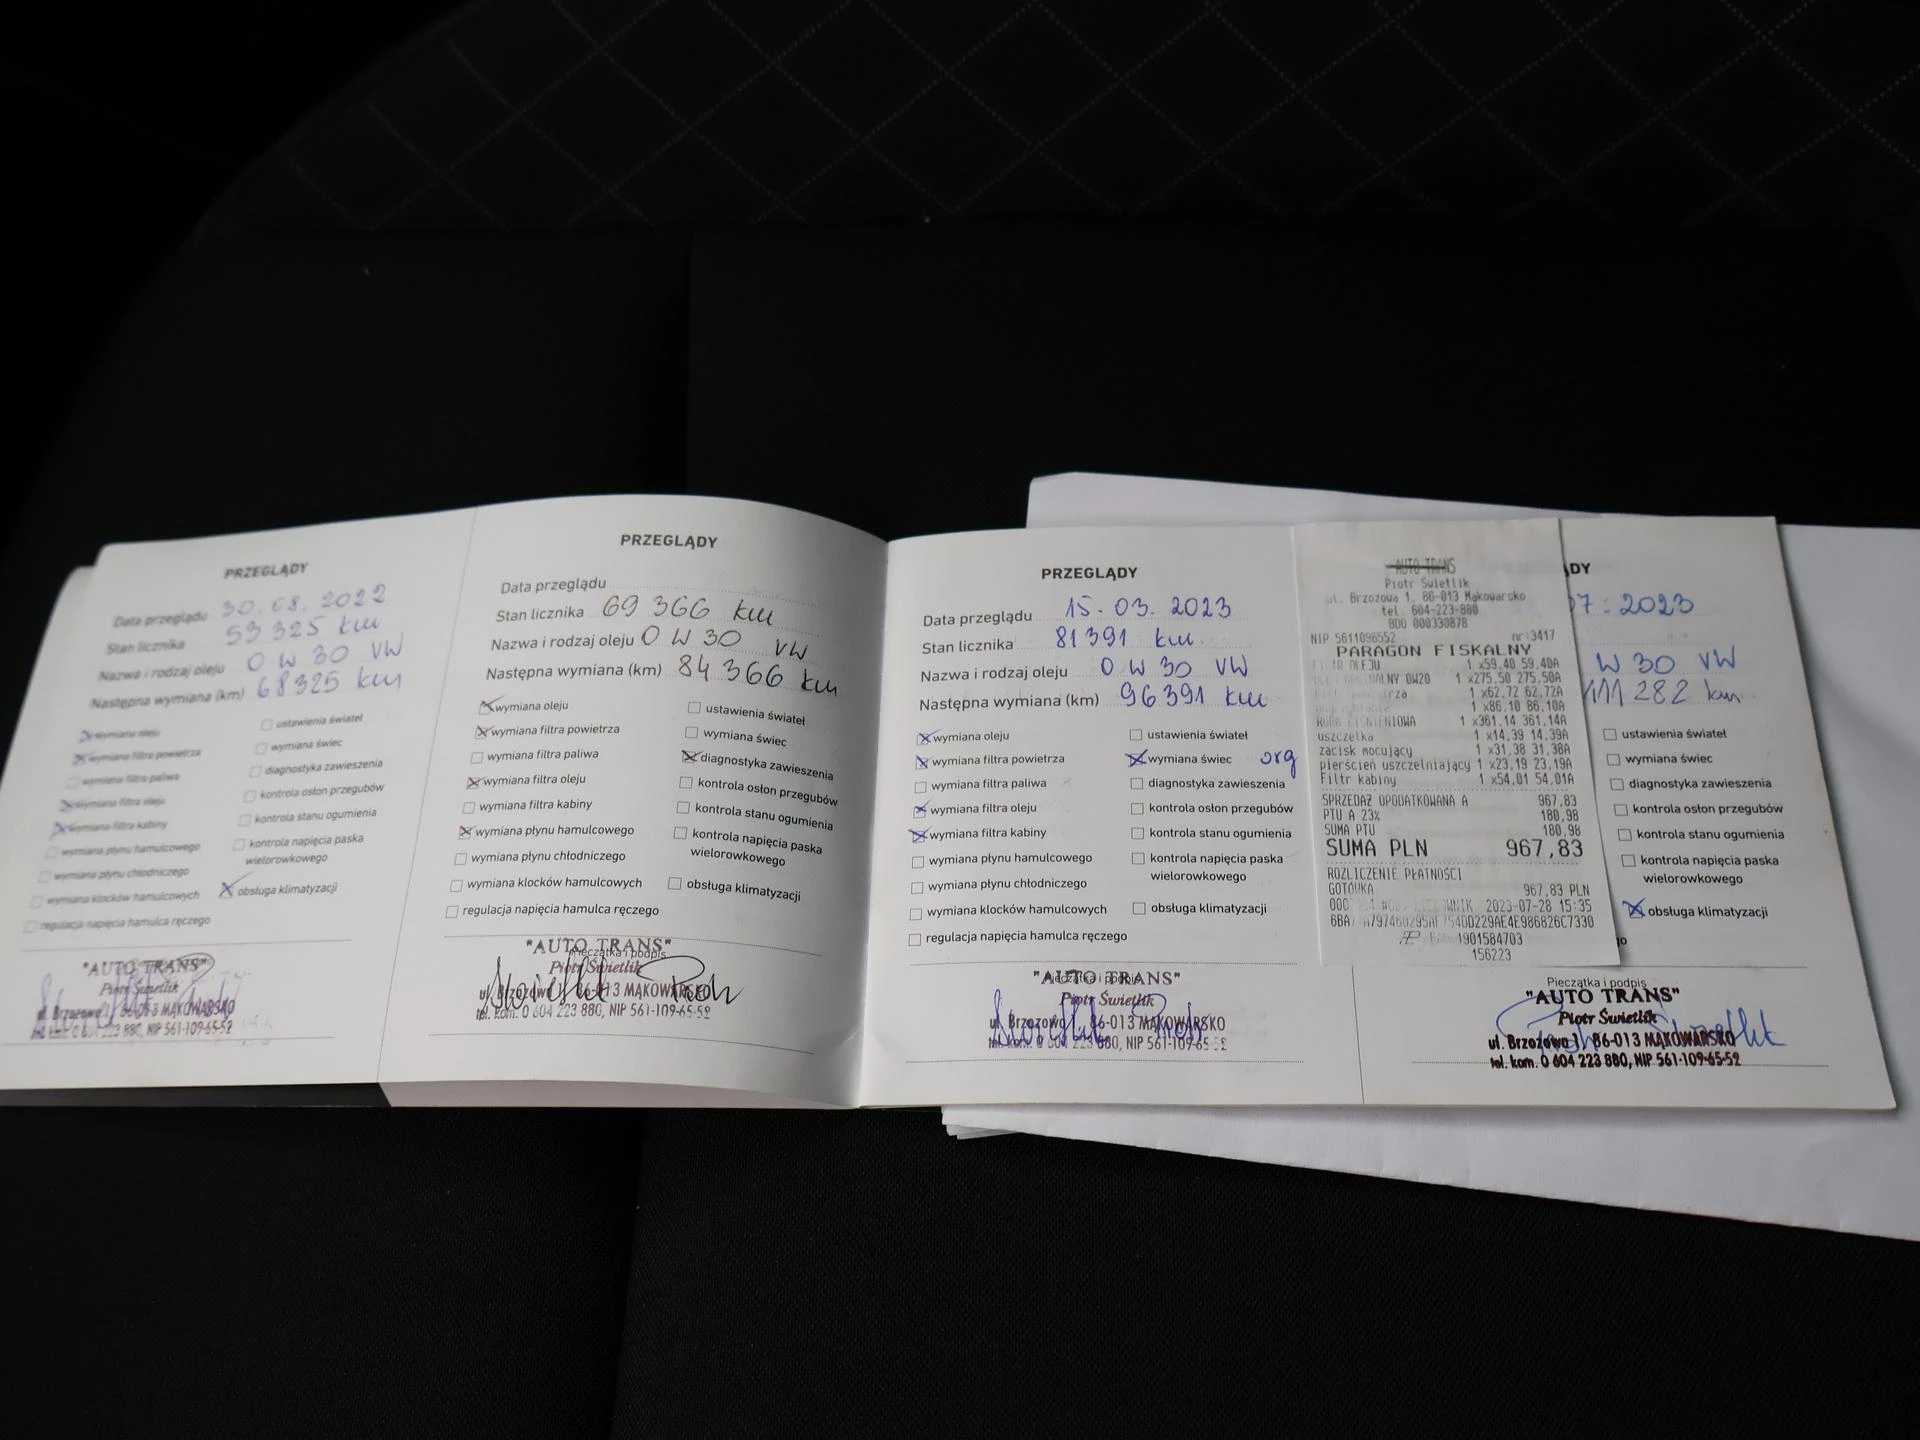 PRZEGLĄDY
Data przeglądu 30.08.2022
Stan licznika 53 325 km
Nazwa i rodzaj oleju 0 W 30 VW
Następna wymiana (km) 68325 km
wymiana oleju
wymiana filtra powietrza
wymiana filtra paliwa
wymiana filtra oleju
wymiana filtra kabiny
wymiana płynu hamulcowego
wymiana płynu chłodniczego
wymiana klocków hamulcowych
regulacja napięcia hamulca ręcznego
ustawienia świateł
wymiana świec
diagnostyka zawieszenia
kontrola osłon przegubów
kontrola stanu ogumienia
kontrola napięcia paska
wielorowkowego
obsługa klimatyzacji
"AUTO TRANS"
Piotr Świetlik
ul. Brzozowa 1 86-013 MĄKOWARSKO
NIP 561-109-65-52
PRZEGLĄDY
Data przeglądu
Stan licznika 69 366 km
Nazwa i rodzaj oleju 0 W 30 VW
Następna wymiana (km) 84 366 km
wymiana oleju
wymiana filtra powietrza
wymiana filtra paliwa
wymiana filtra oleju
wymiana filtra kabiny
wymiana płynu hamulcowego
wymiana płynu chłodniczego
wymiana klocków hamulcowych
regulacja napięcia hamulca ręcznego
ustawienia świateł
wymiana świec
diagnostyka zawieszenia
kontrola osłon przegubów
kontrola stanu ogumienia
kontrola napięcia paska
wielorowkowego
obsługa klimatyzacji
Pieczątka i podpis
"AUTO TRANS"
Piotr Świetlik
ul. Brzozowa 1 86-013 MĄKOWARSKO
tel. kom. 0 604 223 880, NIP 561-109-65-52
PRZEGLĄDY
Data przeglądu 15.03.2023
Stan licznika 81 391 km
Nazwa i rodzaj oleju 0 W 30 VW
Następna wymiana (km) 96 391 km
wymiana oleju
wymiana filtra powietrza
wymiana filtra paliwa
wymiana filtra oleju
wymiana filtra kabiny
wymiana płynu hamulcowego
wymiana płynu chłodniczego
wymiana klocków hamulcowych
regulacja napięcia hamulca ręcznego
ustawienia świateł
wymiana świec org
diagnostyka zawieszenia
kontrola osłon przegubów
kontrola stanu ogumienia
kontrola napięcia paska
wielorowkowego
obsługa klimatyzacji
Pieczątka i podpis
"AUTO TRANS"
Piotr Świetlik
ul. Brzozowa 1 86-013 MĄKOWARSKO
tel. kom. 0 604 223 880, NIP 561-109-65-52
AUTO TRANS
Piotr Świetlik
ul. Brzozowa 1, 86-013 Mąkowarsko
tel. 604-223-880
BDO 000330878
NIP 5611096552 nr:3417
PARAGON FISKALNY
FILTR OLEJU 1 x59,40 59,40A
0W20 1 x275,50 275,50A
1 x62,72 62,72A
1 x86,10 86,10A
RURA CIŚNIENIOWA 1 x361,14 361,14A
uszczelka 1 x14,39 14,39A
zacisk mocujący 1 x31,38 31,38A
pierścień uszczelniający 1 x23,19 23,19A
Filtr kabiny 1 x54,01 54,01A
SPRZEDAŻ OPODATKOWANA A 967,83
PTU A 23% 180,98
SUMA PTU 180,98
SUMA PLN 967,83
ROZLICZENIE PŁATNOŚCI
GOTÓWKA 967,83 PLN
2023-07-28 15:35
1901584703
156223
DY
07.2023
W 30 VW
111 282 km
ustawienia świateł
wymiana świec
diagnostyka zawieszenia
kontrola osłon przegubów
kontrola stanu ogumienia
kontrola napięcia paska
wielorowkowego
obsługa klimatyzacji
go
Pieczątka i podpis
"AUTO TRANS"
Piotr Świetlik
ul. Brzozowa 1 86-013 MĄKOWARSKO
tel. kom. 0 604 223 880, NIP 561-109-65-52